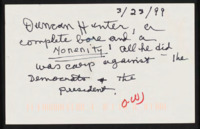 3/23/99
Duncan Hunter, a
complete bore and a
Nonanity! All he did
was carp against the
Democrats & the
president.